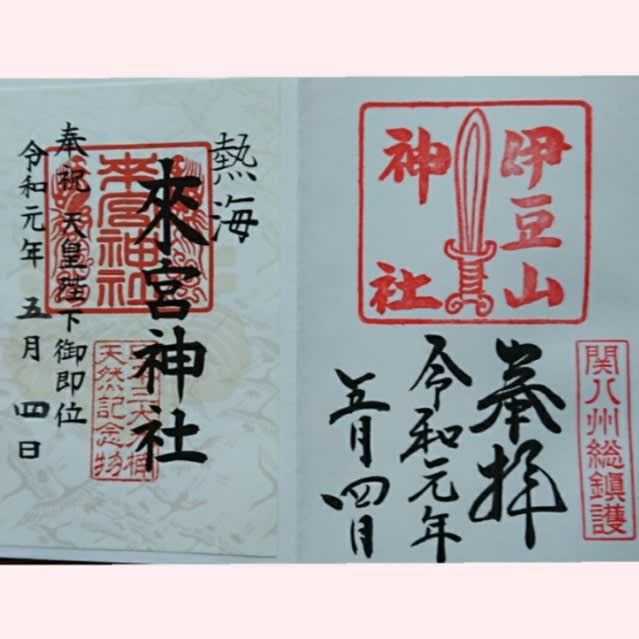 関八州総鎮護
伊豆山
神社
奉拝
令和元年
五月四日
熱海
來宮神社
来宮
神社
天然記念物
奉祝 天皇陛下御即位
令和元年 五月 四日